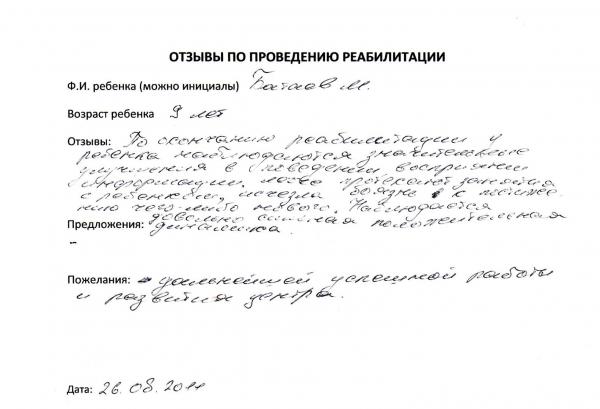 ОТЗЫВЫ ПО ПРОВЕДЕНИЮ РЕАБИЛИТАЦИИ
Ф.И. ребенка (можно инициалы) Батаев М.
Возраст ребенка 9 лет
Отзывы: По окончанию реабилитации у
ребенка наблюдаются значительные
улучшения в поведении восприятии
информации, легче протекают занятия
с ребенком, исчезла боязнь к
нию чего-либо нового. Наблюдается
довольно сильная положительная
Предложения: динамика.
-
Пожелания: - дальнейшей успешной работы
и развития центра.
Дата: 26.08.2011